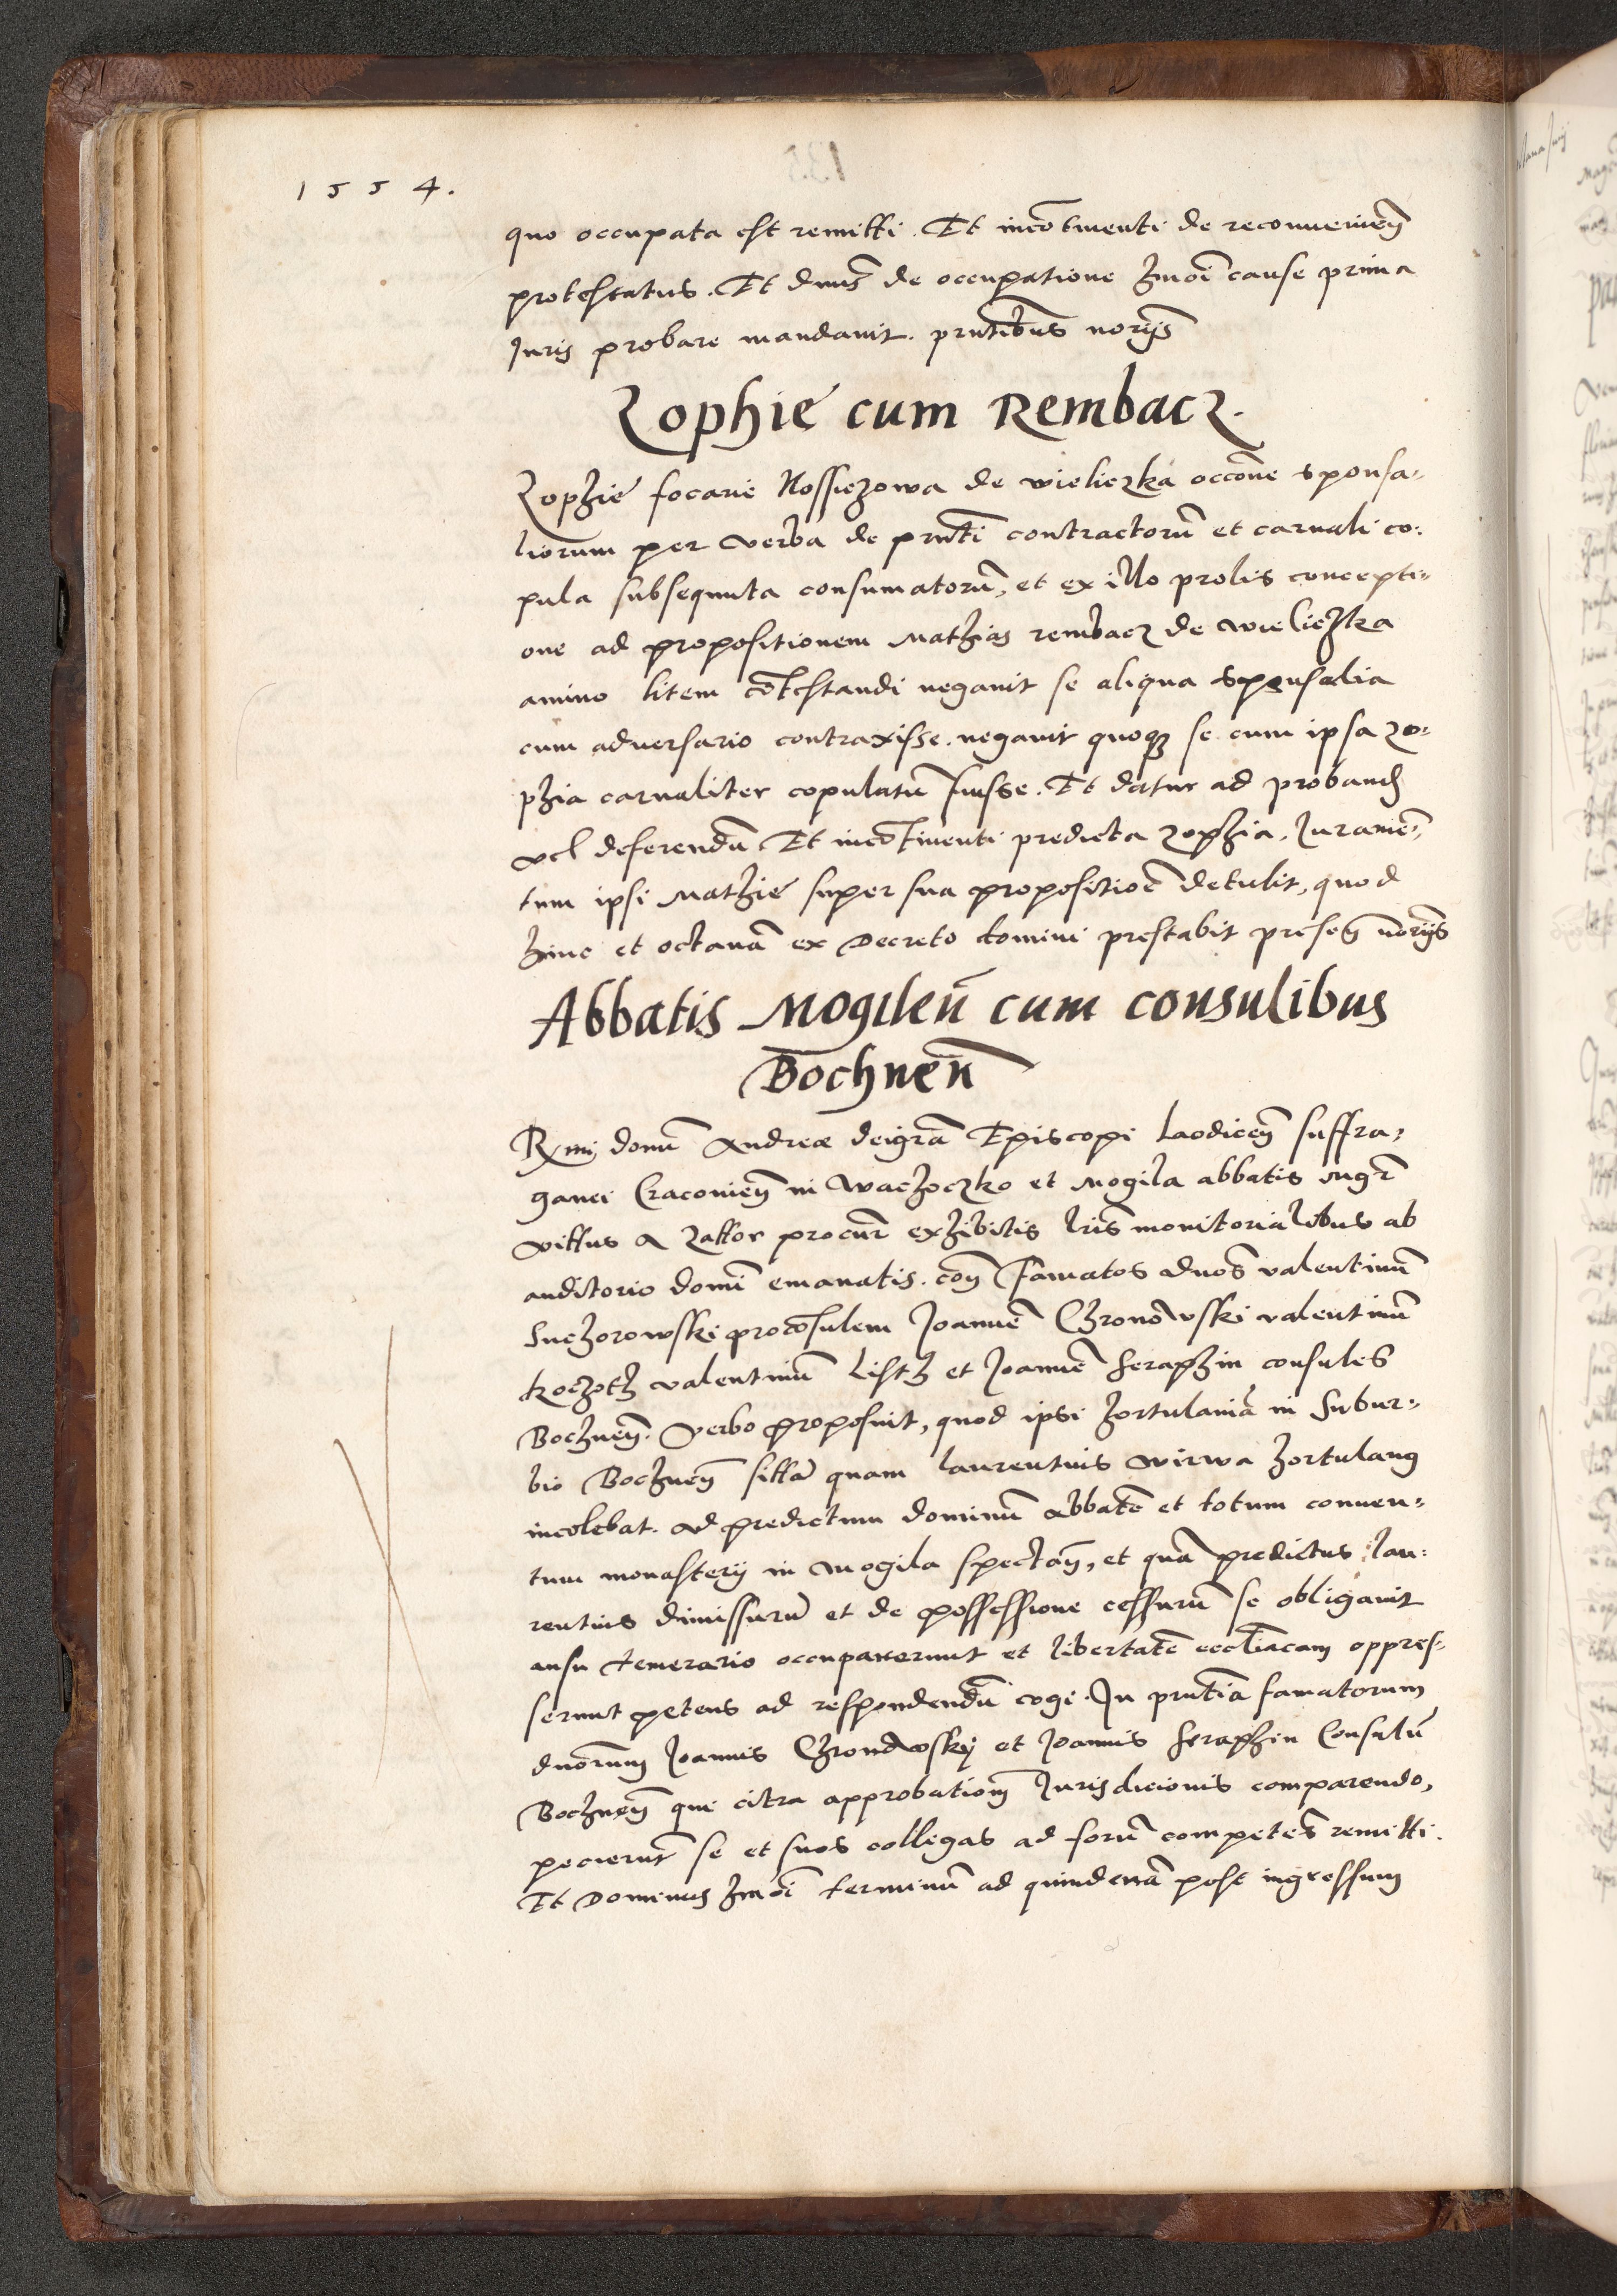 1554.
quo occupata est remitti. Et incōtinenti de reconuenien̄
protestatus. Et dnūs de occupatione hmōi cause prima
Juris probare mandauit. pntībus norijs
Zophie cum Rembacz.
Zophie focarie Nossiczowa de wieliczka occōne sponsa-
liorum per verba de pntī contractorū et carnali co-
pula subsequuta consumatorū, et ex illo prolis concepti-
one ad propositionem Mathias rembacz de Wieliczka
animo litem cōtestandi negauit se aliqua sponsalia
cum aduersario contraxisse. negauit quoqȝ se cum ipsa Zo-
phia carnaliter copulatū fuisse. Et datur ad proband
vel deferendū. Et incōtinenti predicta Zophia. Juramē-
tum ipsi Mathie super sua propositiōe detulit, quod
hinc et octauā ex Decreto domini prestabit presen̄ norijs
Abbatis Mogilen̄ cum consulibus
Bochnen̄
Rx̄mi domī Andreæ deigrā Episcopi Laodicen̄ suffra-
ganei Cracouien̄ in Wachoczko et Mogila abbatis Mgr̄
vittus a Zattor procur̄ exhibitis lrīs monitorialibus ab
auditorio domī emanatis. con̄ famatos dnōs valentinū
Suchorowski procōsulem Joannē Chronowski valentinū
Koczoth valentinū Listh et Joannē Seraphin consules
Bochnen̄. verbo proposuit, quod ipsi hortulaniā in Subur-
bio Bochnen̄ sittā quam Laurentius Wirwa hortulanus
incolebat. ad predictum dominū abbatē et totum conuen-
tum monasterij in Mogila spectan̄, et quā predictus Lau-
rentius dimissurū et de possessione cessurū se obligauit
ausu temerario occuparerunt et libertatē ecclīacam oppres-
serunt petens ad respondendū cogi. In pntīa famatorum
dnōrum Joannis Chronowskij et Joannis Seraphin Consulū
Bochnen̄ qui citra approbationem Jurisdicionis comparendo,
pecierunt se et suos collegas ad forū competēs remitti.
Et Dominus hmōi terminū ad quindenā post ingressum